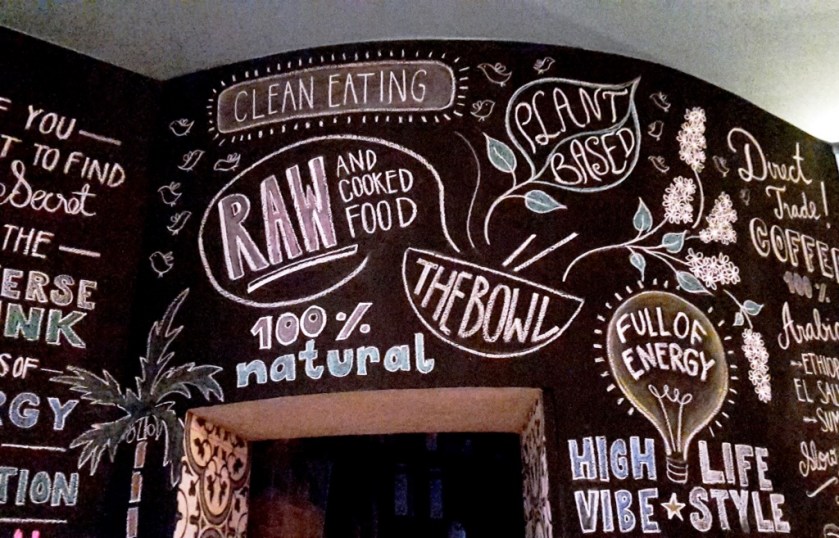 YOU—
TO FIND
Secret
THE —
ERSE
OF—
TION
CLEAN EATING
RAW
AND
COOKED
FOOD
100%
natural
PLANT
BASED
THE BOWL
FULL OF
ENERGY
HIGH
VIBE
LIFE
STYLE
Direct
Trade!
COFFE
100%
Arab
EL SA